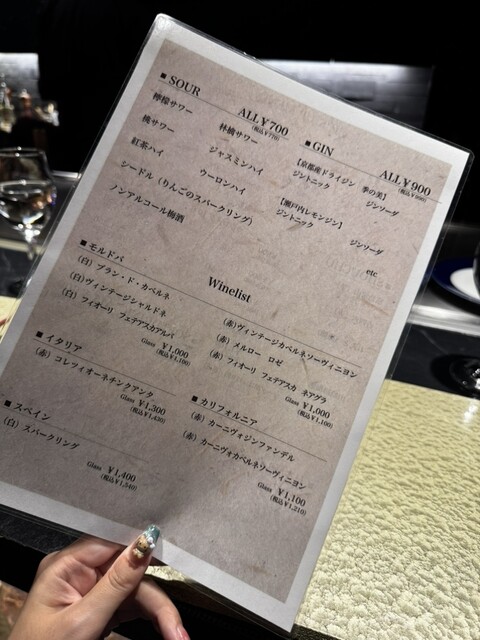 ■ SOUR
ALL¥700
(税込¥770)
檸檬サワー
林檎サワー
桃サワー
ジャスミンハイ
紅茶ハイ
ウーロンハイ
シードル(りんごのスパークリング)
ノンアルコール梅酒
■GIN
ALL¥900
【京都産ドライジン 季の美】
ジントニック
ジンソーダ
【瀬戸内レモンジン】
ジントニック
ジンソーダ
etc
Winelist
■ モルドバ
(白) ブラン・ド・カベルネ
(白)ヴィンテージシャルドネ
(白) フィオーリ フェテアスカアルバ
Glass ¥1,000
(税込¥1,100)
(赤)ヴィンテージカベルネソーヴィニヨン
(赤) メルロー ロゼ
(赤) フィオーリ フェテアスカ ネアグラ
Glass ¥1,000
(税込¥1,100)
■ イタリア
(赤) コレフィオーネチンクアンタ
Glass ¥1,300
(税込¥1,430)
■ カリフォルニア
(赤) カーニヴォジンファンデル
(赤) カーニヴォカベルネソーヴィニヨン
Glass ¥1,100
(税込¥1,210)
■ スペイン
(白) スパークリング
Glass ¥1,400
(税込¥1,540)